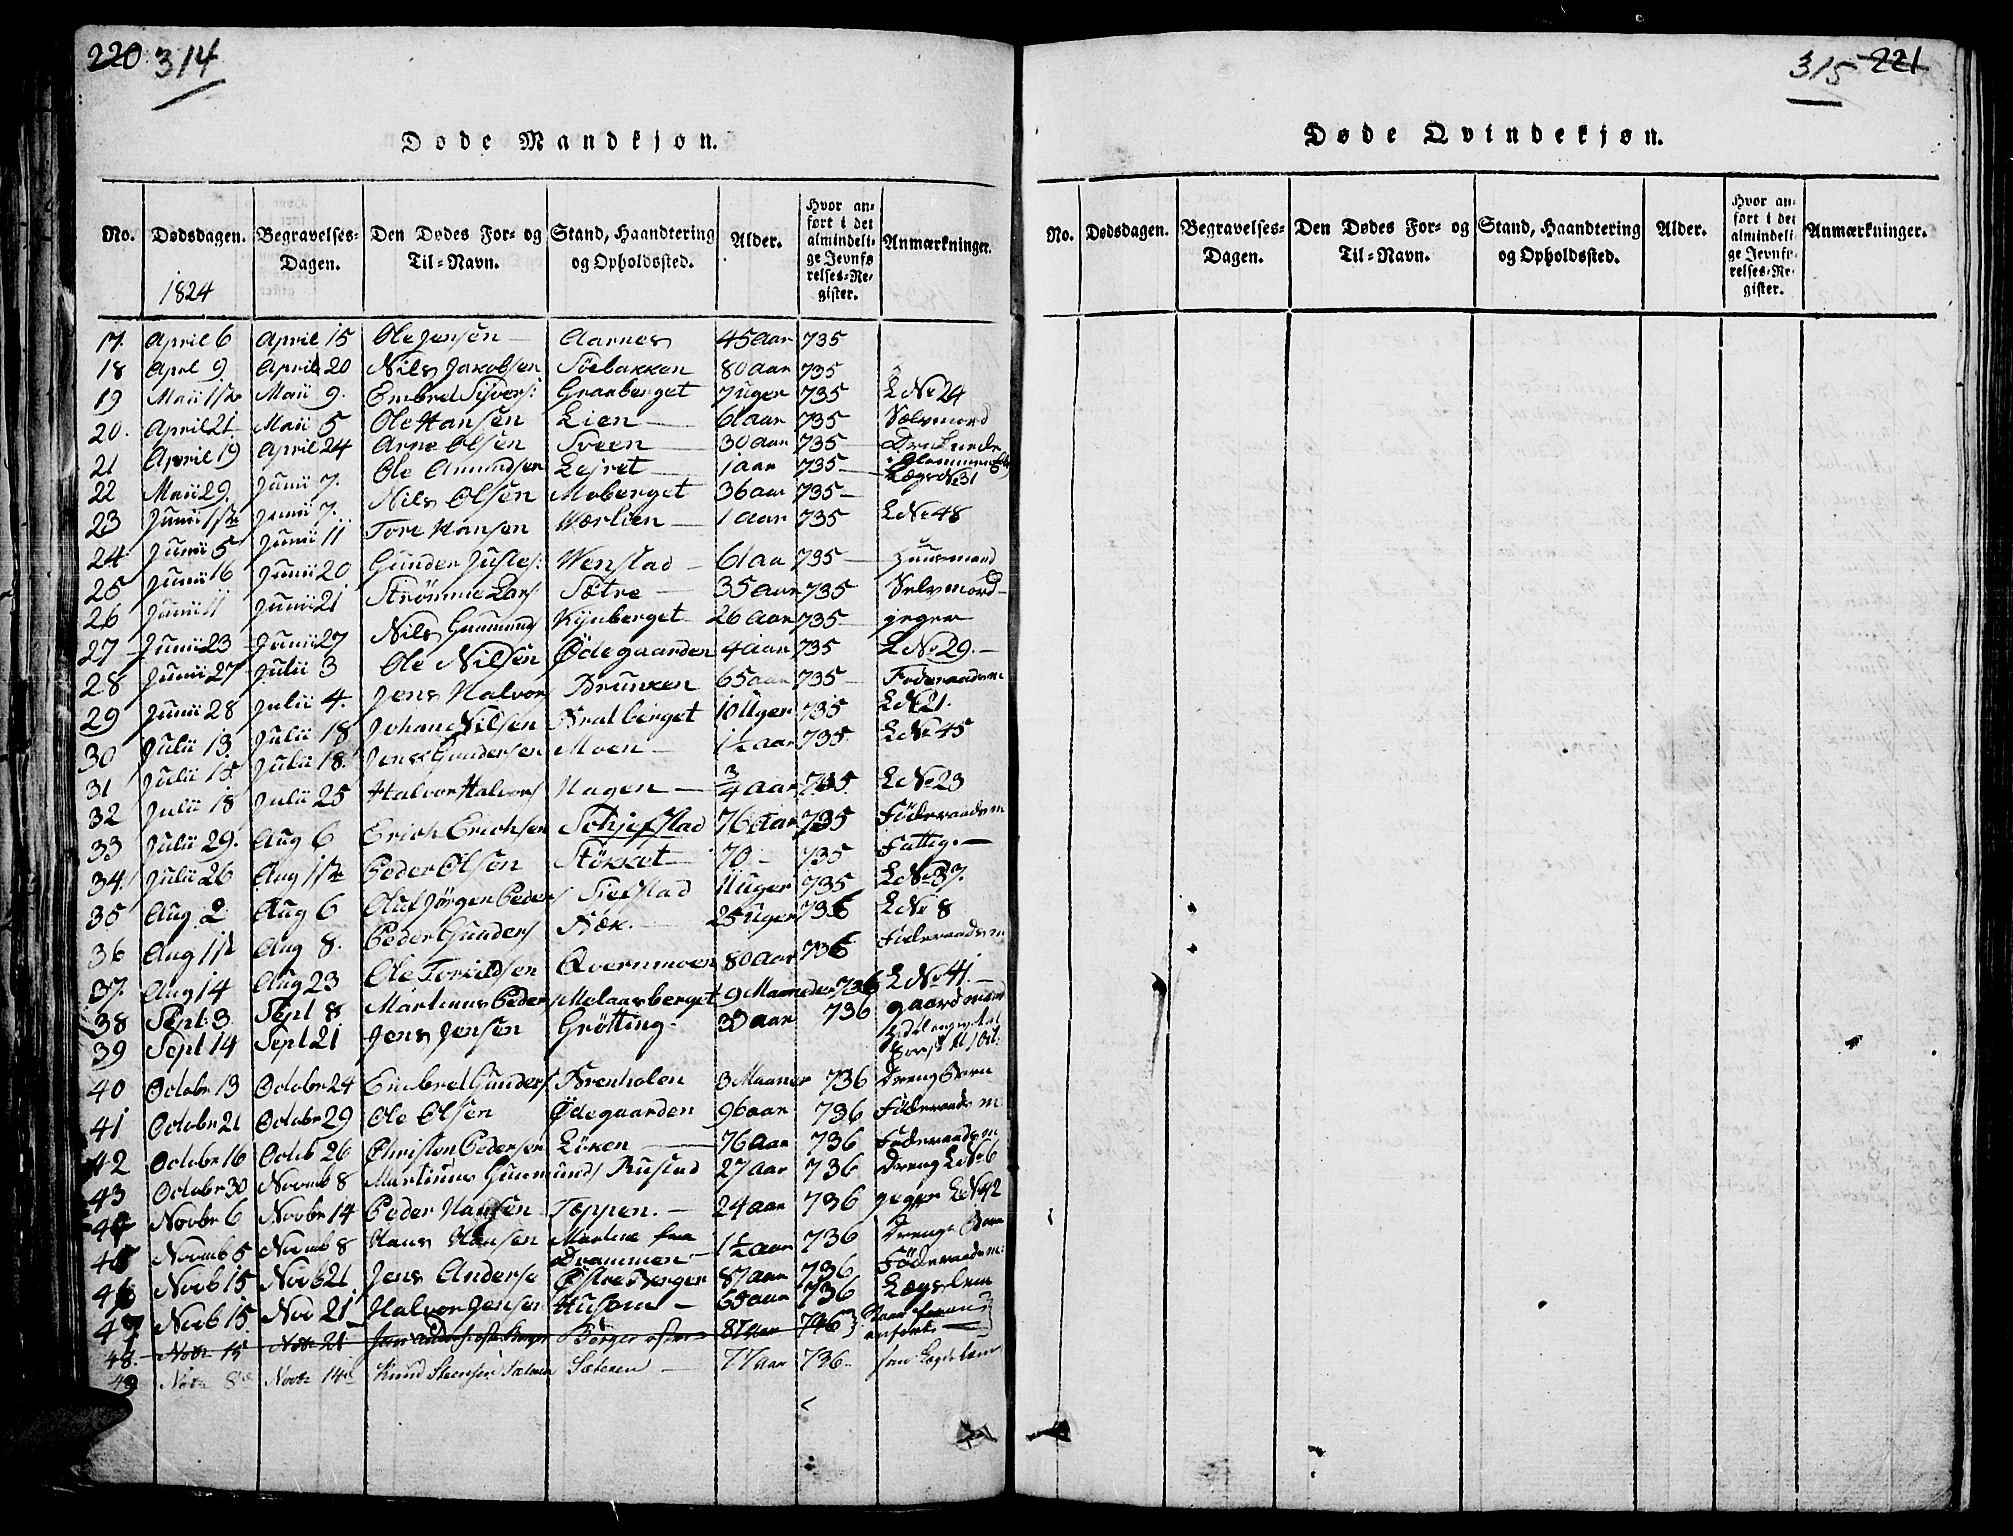 220 314
Døde Mandkjøn.
No. Dødsdagen. Begravelses-Dagen. Den Dødes For- og Til-Navn. Stand, Haandtering og Opholdssted. Alder. Hvor anført i det almindelige Jevnførelses-Register. Anmærkninger.
1824
17. April 6 April 15 Ole Jensen Aarnes 45 Aar 735
18 Aprl 9 April 20 Nils Jakobsen Söebakken 80 aar 735
19 Maii 1ste Maii 9. Embret Sijvers: Granberget 7 uger 735 LNo 24
20. April 21 Maii 5 Ole Hansen Lien 61 aar 735 Sælvmord
21 April 19 April 24 Arne Olsen Sveen 30 aar 735 Druknede i Glommen
22 Maii 29. Junii 7. Ole Amundsen Lejret 1 aar 735 Lægd No 31
23 Junii 1ste Junii 7. Nils Olsen Moberget 36 aar 735
24 Junii 5 Junii 11 Tore Hansen Værlien 1 aar 735 LNo 48
25 Junii 16 Junii 20 Gunder Justes: Wenstad 61 aa 735 Huusmand
26 Junii 11 Junii 21 Strömme Lars Sætre 35 aar 735 Selvmord
27 Junii 23 Junii 27 Nils Gunmund Kynberget 26 aar 735 jeger
28 Junii 27 Julii 3 Ole Nilsen Ödegaarden 4 aar 735 LNo 29.
29 Junii 28 Julii 4. Jens Halvor Brunken 65 aar 735 Föderaadsm
30 Julii 13. Julii 18 Johan Nilsen Bratberget 10 Uger 735 LNo 21.
31 Julii 15 Julii 18. Jens Gundersen Moen 1½ aar 735 LNo 45
32 Julii 18 Julii 25 Halvor Halvors Hagen ¾ aar 735 LNo 23
33 Julii 29. Aug 6 Erich Erichsen Schjefstad 76 aar 735 Föderaadsm
34. Julii 26 Aug 1ste Peder Olsen Stökket 70 735 Fattig.
35 Aug 2 Aug 6 Olul Jörgen Peders Siefstad 11 uger 735 LNo 37.
36 Aug 11te Aug 8. Peder Gunders Bæk. 25 Uger 736 LNo 8
37. Aug 14 Aug 23 Ole Torkildsen Qvernmoen 80 Aar 736 Föderaadsm
38 Sept: 3 Sept 8 Martinus Peders Melaasberget 9 Maaneder 736 LNo 41.
39 Sept 14 Sept 21 Jens Jensen Grötting 33 aar 736 gaardmand
40 Octobr 13 Octobr 24 Embret Gunders Brenholen 3 Maaner 736 Dreng Barn
41 Octobr 21 Octobr 29 Ole Olsen Ödegaarden 96 aar 736 Föderaadsm
42 Octobr 16 Octob 26 Christen Pedersen Löken 76 aar 736 Föderaadsm
43 Octobr 30 Novemb 8 Martinus Gunmunds Rustad 27 aar 736 Dreng LNo 6
44 Novbr 6 Novbr 14 Peder Hansen Tæppen. 24 aar 736 jeger LNo 42
45 Novmb 5 Novmb 8 Hans Hansen Martine fra Drammen 1½ aar 736 Drenge Barn
46 Novb 15 Novb 21 Jens Anderse Östre Berger 87 aar 736 Föderaadsm:
47 Novb 15. Nov 21 Halvor Jensen Husom 65 aar 736 Lægslem
48. Novbr 15 Novbr 21 Berger östre 87 aar 746 anfört
49 Novbr 8de Novbr 14de Knud Steensen Sæteren 77 aar 736. som Lægdslem
315 221
Døde Qvindekjøn.
No. Dødsdagen. Begravelses-Dagen. Den Dødes For- og Til-Navn. Stand, Haandtering og Opholdssted. Alder. Hvor anført i det almindelige Jevnførelses-Register. Anmærkninger.